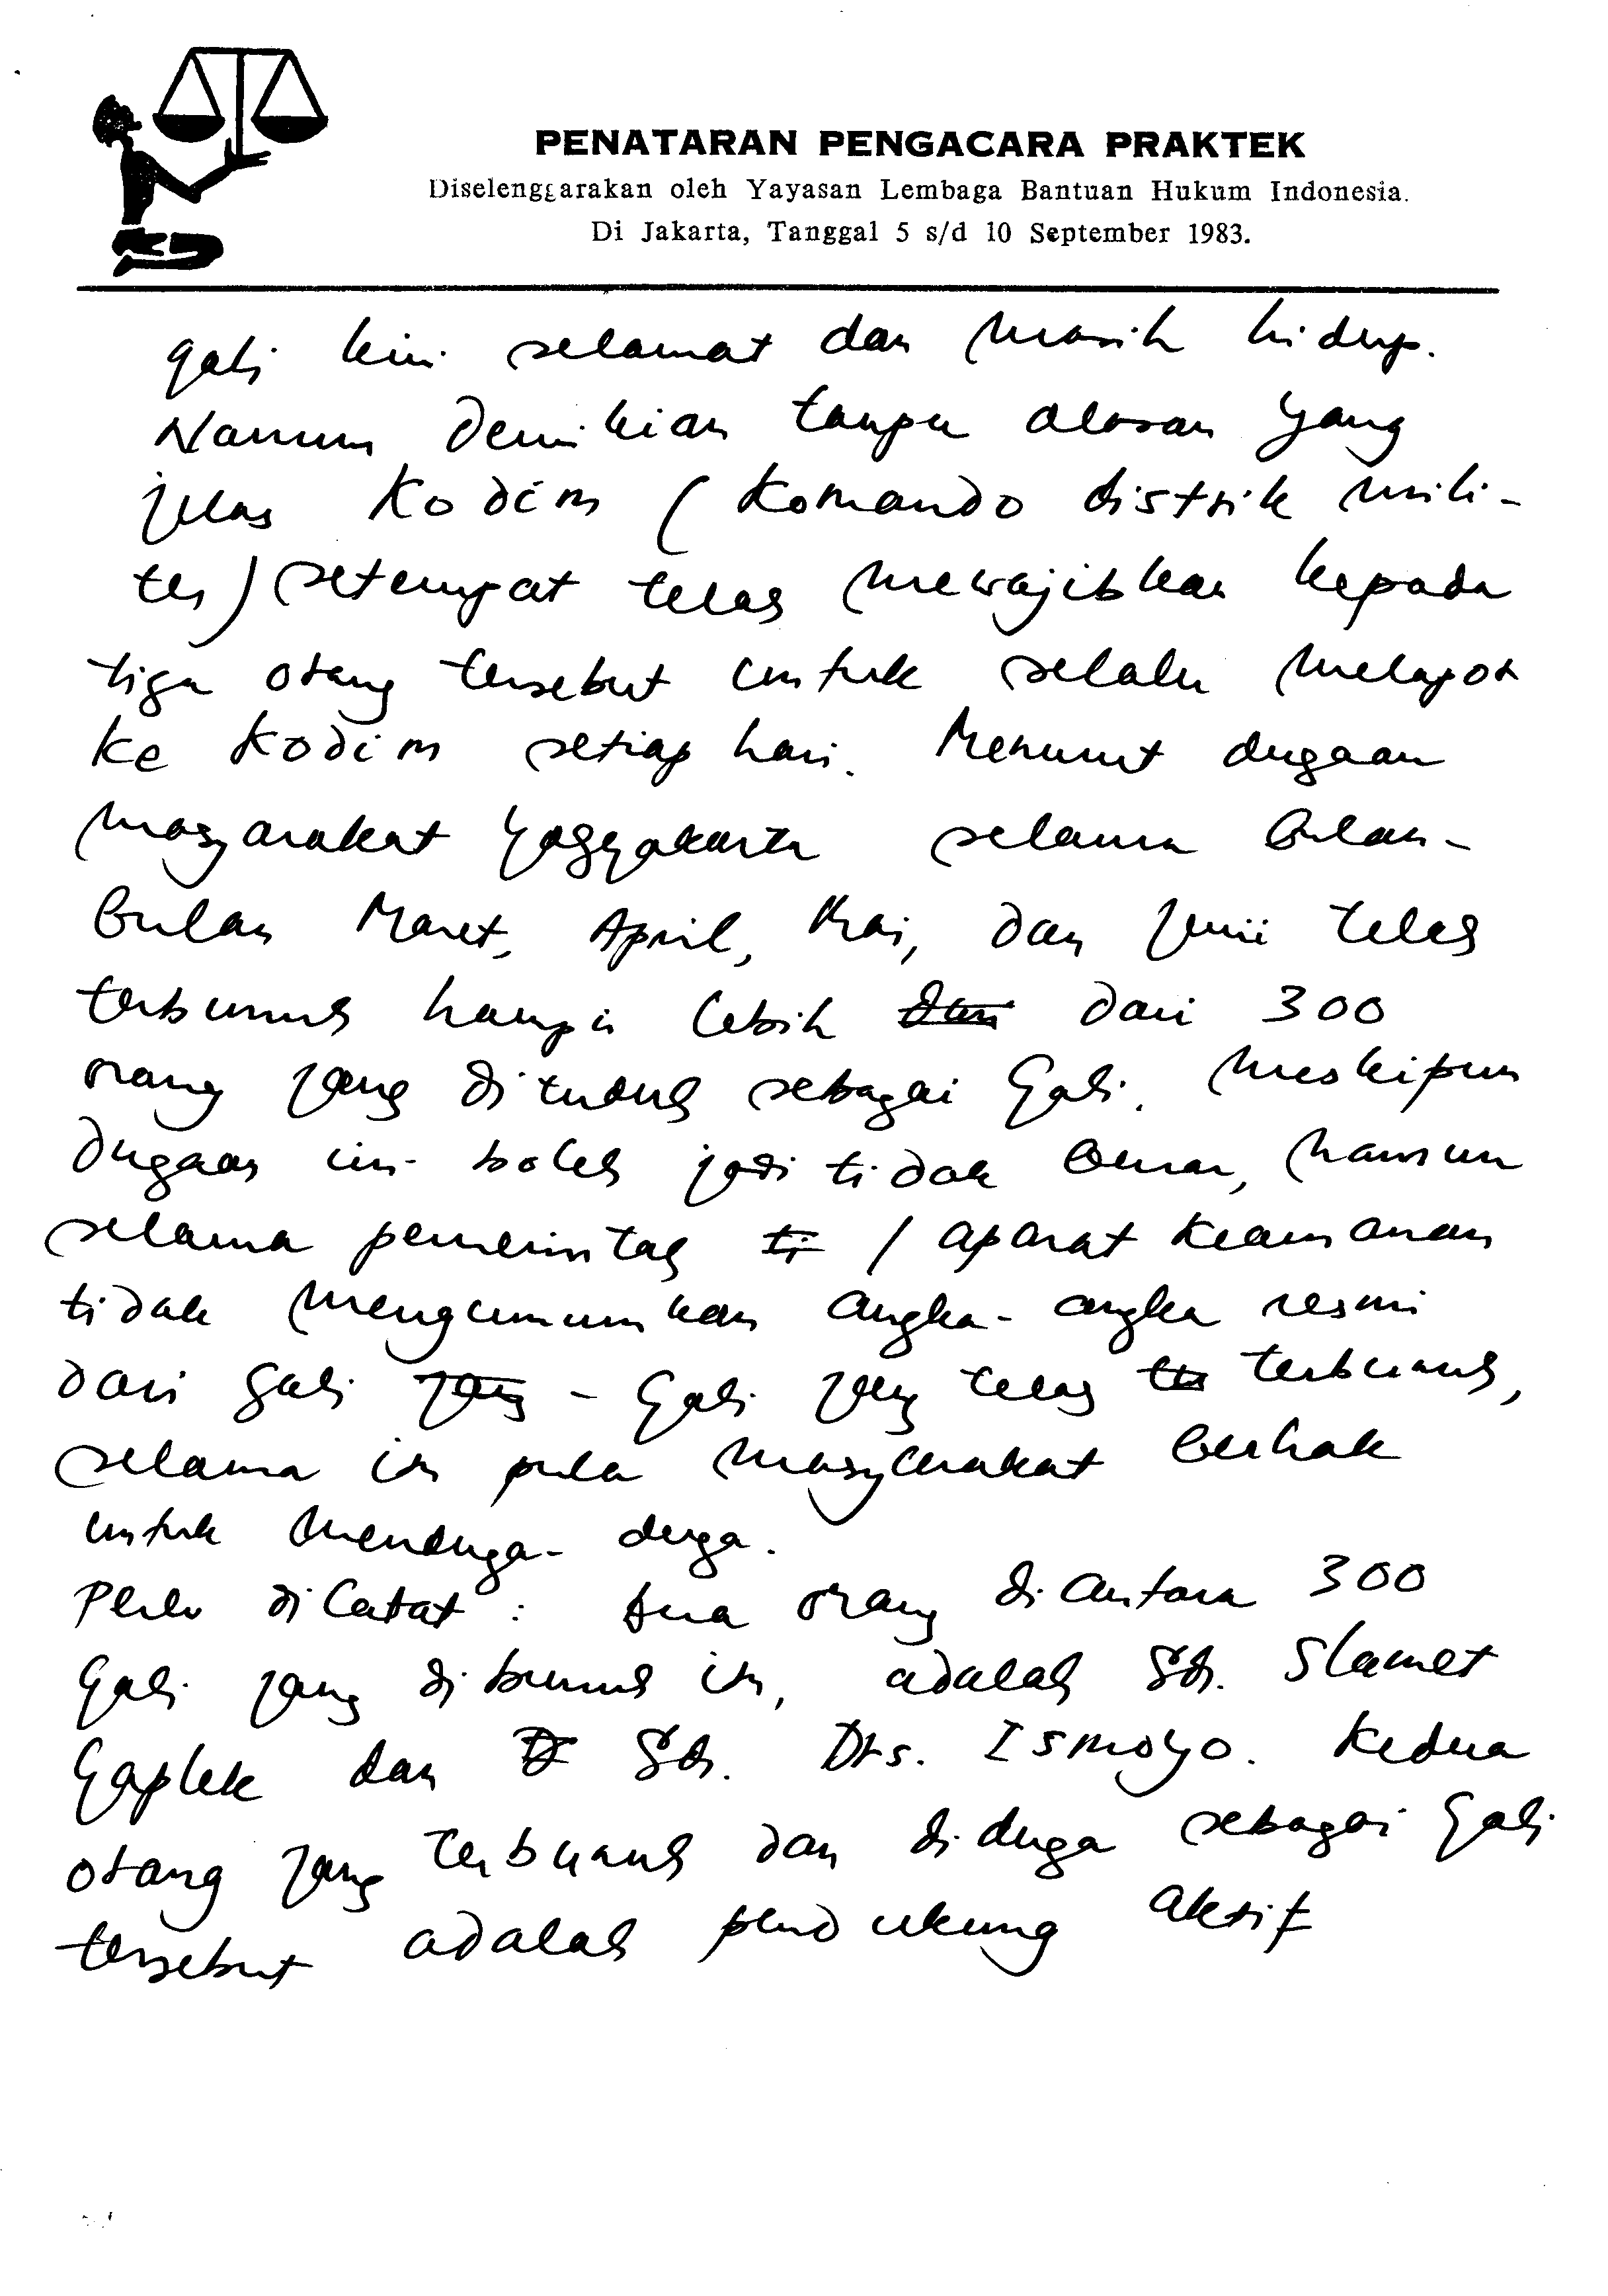 PENATARAN PENGACARA PRAKTEK
Diselenggarakan oleh Yayasan Lembaga Bantuan Hukum Indonesia.
Di Jakarta, Tanggal 5 s/d 10 September 1983.
gali kini selamat dan masih hidup.
Namun demikian tanpa alasan yang
jelas Kodim (Komando distrik mili-
ter) setempat telah mewajibkan kepada
tiga orang tersebut untuk selalu melapor
ke Kodim setiap hari. Menurut dugaan
masyarakat Yogyakarta selama bulan-
bulan Maret, April, Mai, dan Juni telah
terbunuh hampir lebih dari dari 300
orang yang dituduh sebagai Gali. Meskipun
dugaan ini boleh jadi tidak benar, namun
selama pemerintah ti / aparat keamanan
tidak mengumumkan angka-angka resmi
dari gali yang - Gali yang telah te terbunuh,
selama itu pula masyarakat berhak
untuk menduga-duga.
Perlu dicatat : dua orang diantara 300
Gali yang dibunuh itu, adalah Sdr. Slamet
Gaplek dan D Sdr. Drs. Ismoyo. Kedua
orang yang terbunuh dan diduga sebagai Gali
tersebut adalah pendukung aktif